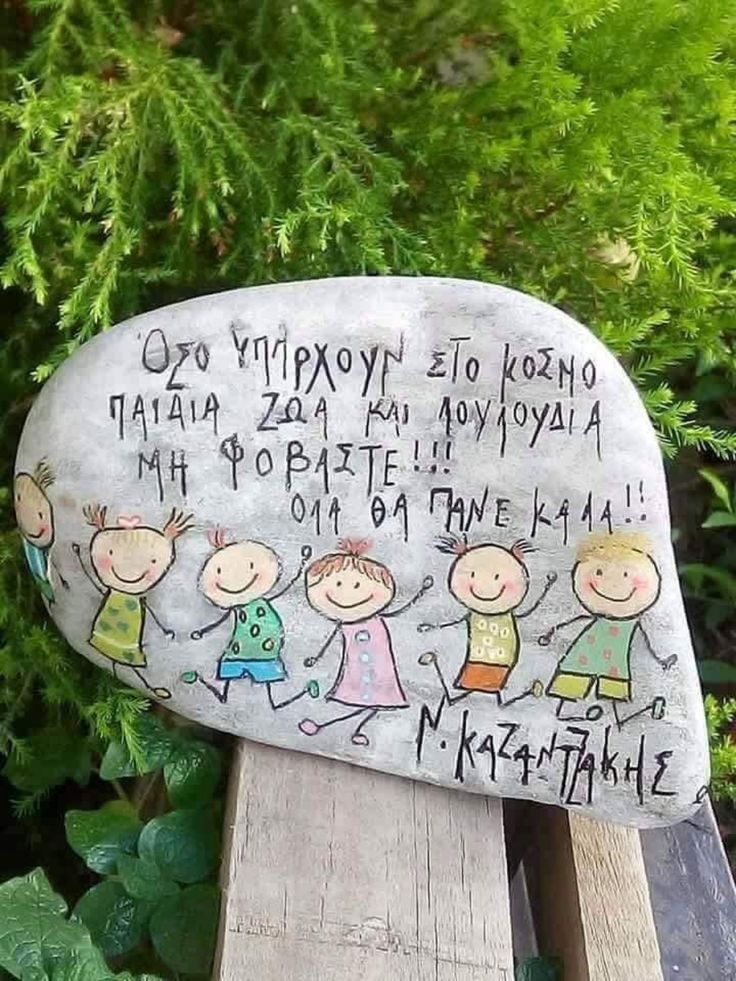 Όσο ΥΠΑΡΧΟΥΝ ΣΤΟ ΚΟΣΜΟ
ΠΑΙΔΙΑ ΖΩΑ ΚΑΙ ΛΟΥΛΟΥΔΙΑ
ΜΗ ΦΟΒΑΣΤΕ!!!
ΟΛΑ ΘΑ ΠΑΝΕ ΚΑΛΑ!!
Ν. ΚΑΖΑΝΤΖΑΚΗΣ